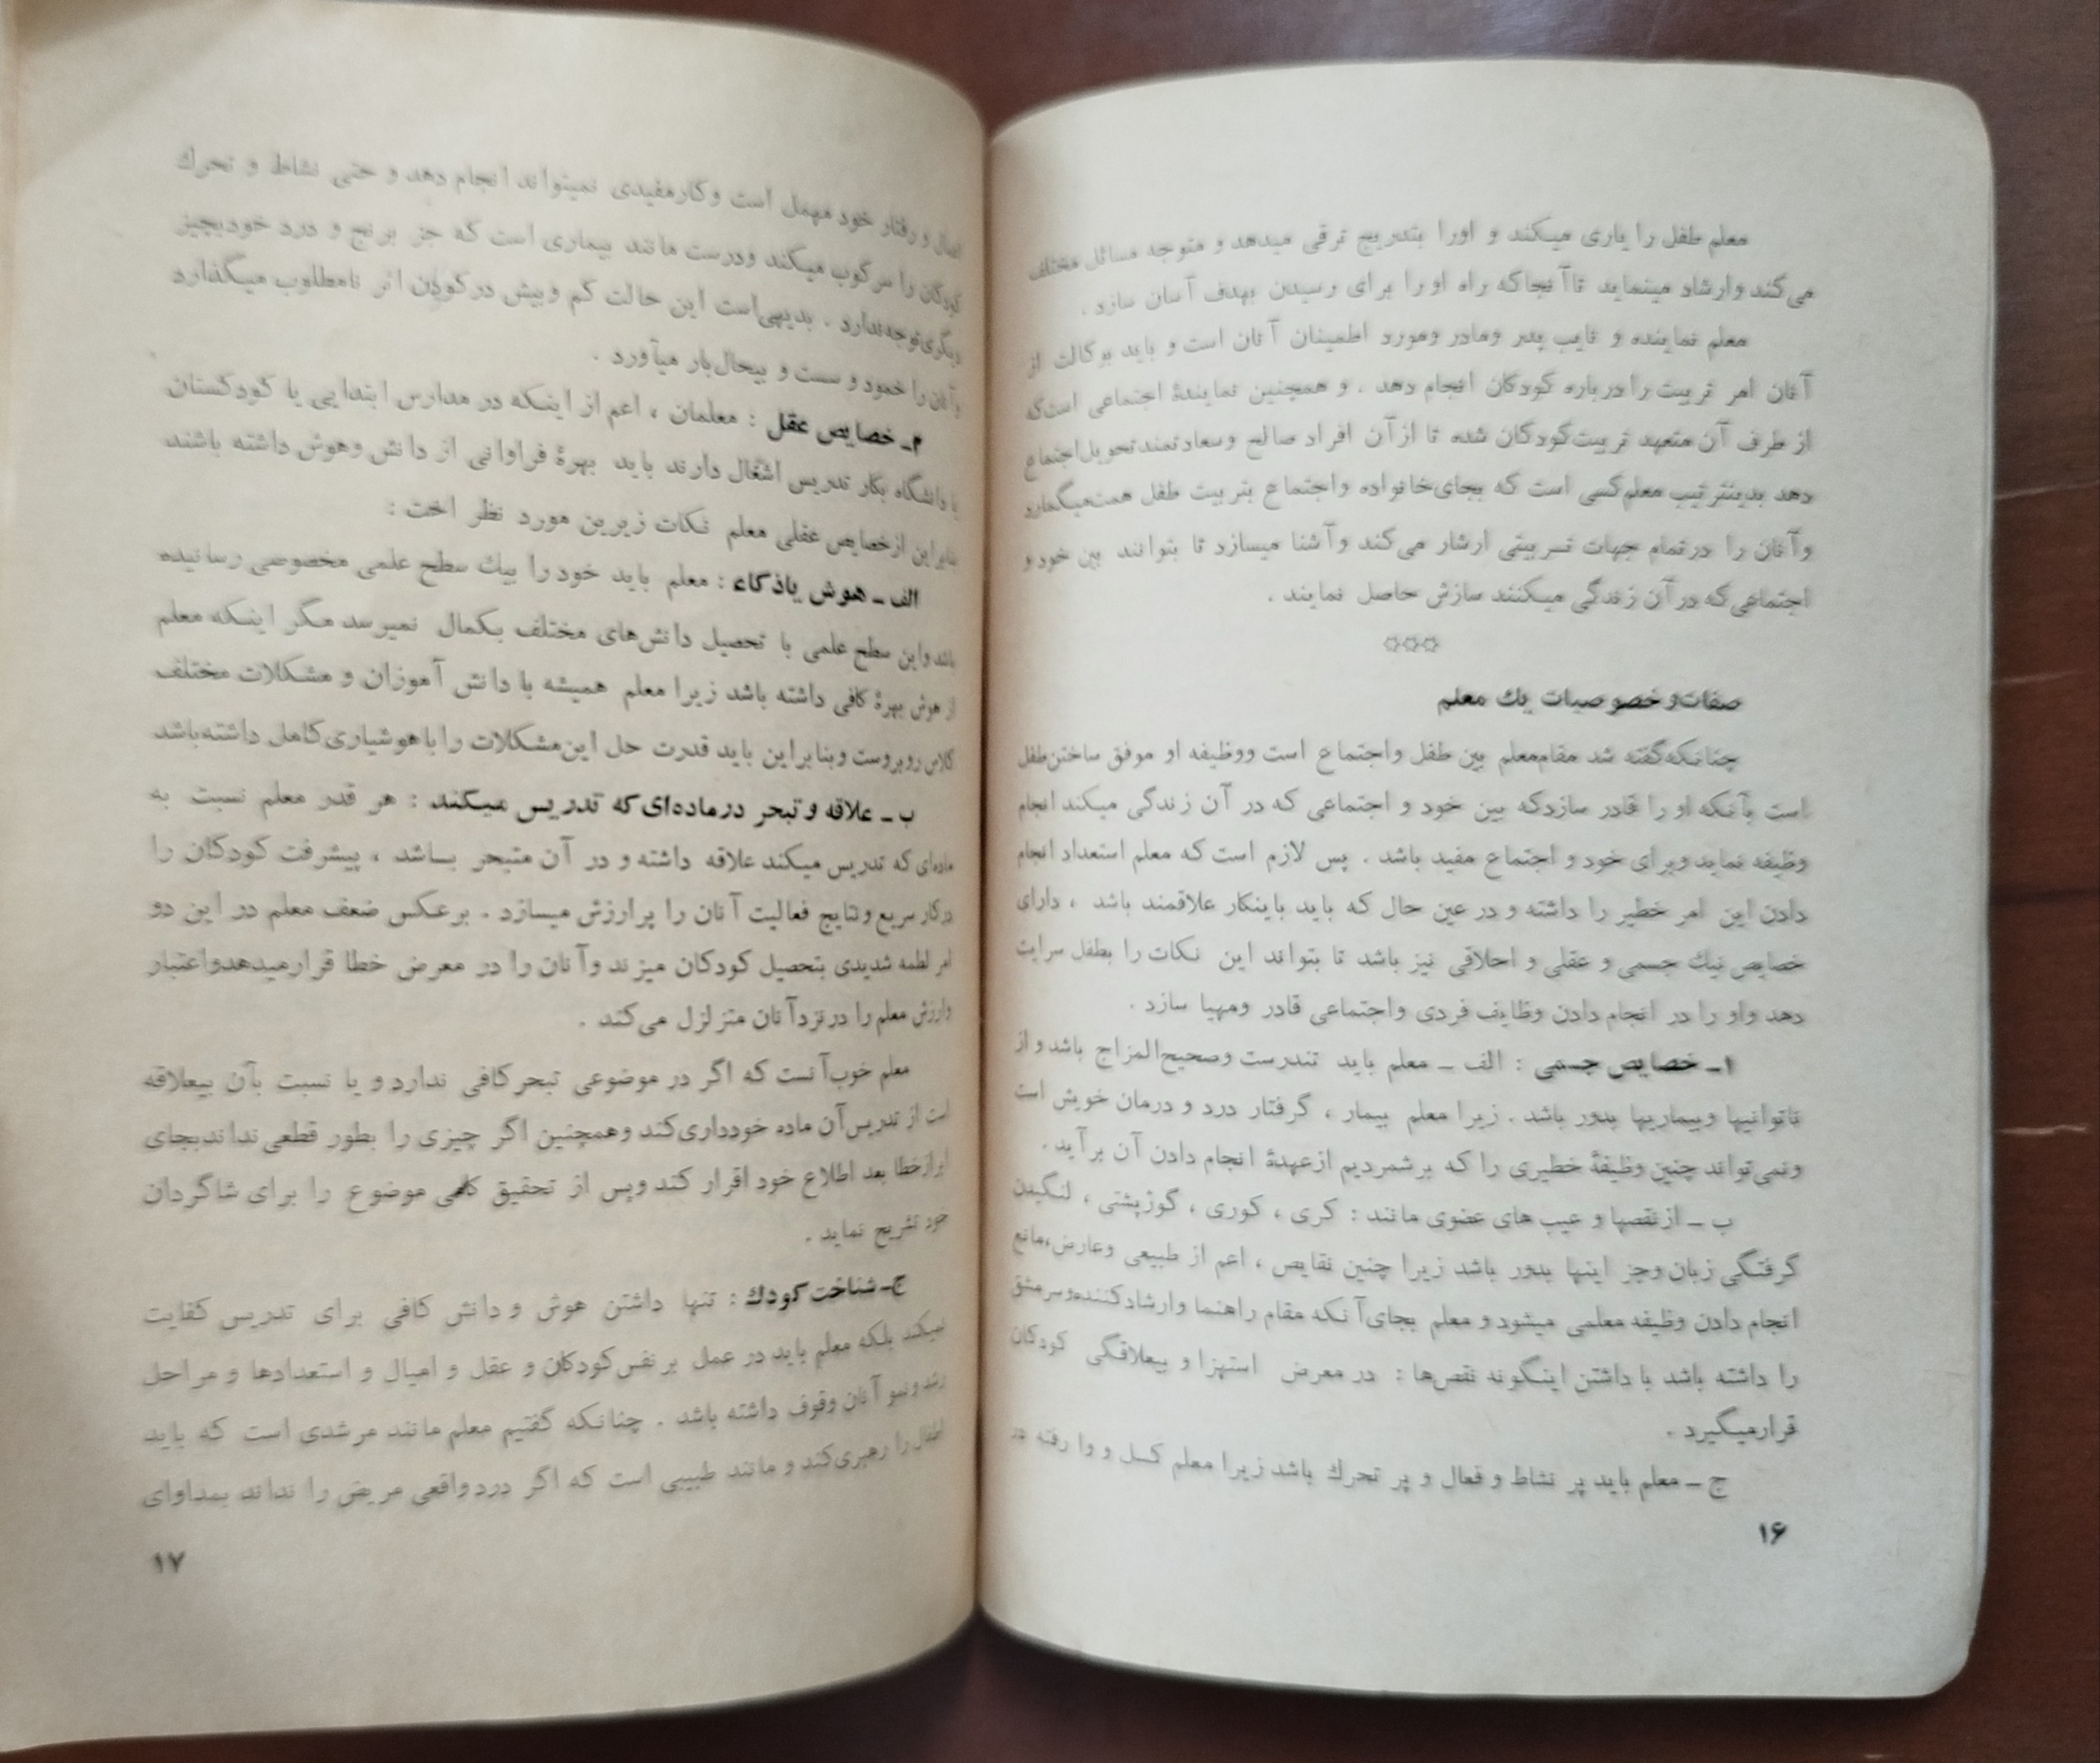 معلم طفل را یاری میکند و اورا بتدریج ترقی میدهد و متوجه مسائل مختلف
می‌کند وارشاد مینماید تاآنجاکه راه اورا برای رسیدن بهدف آسان سازد .
معلم نماینده و نایب پدر ومادر ومورد اطمینان آنان است و باید بوکالت از
آنان امر تربیت را درباره کودکان انجام دهد . و همچنین نمایندهٔ اجتماعی است‌که
از طرف آن متعهد تربیت‌کودکان شده تا ازآن افراد صالح وسعادتمند تحویل‌اجتماع
دهد بدینترتیب معلم‌کسی است که بجای‌خانواده واجتماع بتربیت طفل همت‌میگمارد
وآنان را درتمام جهات تربیتی ارشار می‌کند وآشنا میسازد تا بتوانند بین خود و
اجتماعی‌که درآن زندگی میکنند سازش حاصل نمایند .
☆☆☆
صفات‌و خصوصیات یك معلم
چنانکه‌گفته شد مقام‌معلم بین طفل واجتماع است ووظیفه او موفق ساختن‌طفل
است بآنکه او را قادر سازدکه بین خود و اجتماعی که در آن زندگی میکند انجام
وظیفه نماید وبرای خود و اجتماع مفید باشد . پس لازم است که معلم استعداد انجام
دادن این امر خطیر را داشته و در عین حال که باید باینکار علاقمند باشد ، دارای
خصایص نیك جسمی و عقلی و احلاقی نیز باشد تا بتواند این نکات را بطفل سرایت
دهد واو را در انجام دادن وظایف فردی واجتماعی قادر ومهیا سازد .
۱ـ خصایص جسمی : الف ـ معلم باید تندرست وصحیح‌المزاج باشد و از
ناتوانیها وبیماریها بدور باشد . زیرا معلم بیمار ، گرفتار درد و درمان خویش است
ونمی‌تواند چنین وظیفهٔ خطیری را که برشمردیم ازعهدهٔ انجام دادن آن برآید .
ب ـ ازنقصها و عیب های عضوی مانند : کری ، کوری ، گوژپشتی ، لنگیدن
گرفتگی زبان وجز اینها بدور باشد زیرا چنین نقایص ، اعم از طبیعی وعارض،مانع
انجام دادن وظیفه معلمی میشود و معلم بجای‌آنکه مقام راهنما وارشادکننده‌وسرمشق
را داشته باشد با داشتن اینگونه نقص‌ها : در معرض استهزا و بیعلاقگی کودکان
قرارمیگیرد .
ج ـ معلم باید پر نشاط و فعال و پر تحرك باشد زیرا معلم کسل و وا رفته در
۱۶
اعمال و رفتار خود مهمل است وکارمفیدی نمیتواند انجام دهد و حتی نشاط و تحرك
کودکان را سرکوب میکند ودرست مانند بیماری است که جز برنج و درد خودبچیز
دیگری‌توجه‌ندارد . بدیهی‌است این حالت کم وبیش درکودن اثر نامطلوب میگذارد
وآنان را خمود و سست و بیحال‌بار میآورد .
۲ـ خصایص عقل : معلمان ، اعم از اینکه در مدارس ابتدایی یا کودکستان
یا دانشگاه بکار تدریس اشغال دارند باید بهرهٔ فراوانی از دانش وهوش داشته باشند
بنابراین ازخصایص عقلی معلم نکات زیرین مورد نظر اخت :
الف ـ هوش یاذکاء : معلم باید خود را بیك سطح علمی مخصوصی رسانیده
باشد واین سطح علمی با تحصیل دانش‌های مختلف بکمال نمیرسد مگر اینکه معلم
از هوش بهرهٔ کافی داشته باشد زیرا معلم همیشه با دانش آموزان و مشکلات مختلف
کلاس روبروست وبنابراین باید قدرت حل این‌مشکلات را باهوشیاری‌کامل داشته‌باشد
ب ـ علاقه و تبحر درماده‌ای که تدریس میکند : هر قدر معلم نسبت به
ماده‌ای که تدریس میکند علاقه داشته و در آن متبحر باشد ، پیشرفت کودکان را
درکار سریع ونتایج فعالیت آنان را پرارزش میسازد . برعکس ضعف معلم در این دو
امر لطمه شدیدی بتحصیل کودکان میزند وآنان را در معرض خطا قرارمیدهدواعتبار
وارزش معلم را درنزدآنان متزلزل می‌کند .
معلم خوب‌آنست که اگر در موضوعی تبحرکافی ندارد و یا نسبت بآن بیعلاقه
است از تدریس‌آن ماده خودداری‌کند وهمچنین اگر چیزی را بطور قطعی نداندبجای
ابرازخطا بعد اطلاع خود اقرار کند وپس از تحقیق کلمی موضوع را برای شاگردان
خود تشریح نماید .
ج‌ـ شناخت کودك : تنها داشتن هوش و دانش کافی برای تدریس کفایت
نمیکند بلکه معلم باید در عمل بر نفس‌کودکان و عقل و امیال و استعدادها و مراحل
رشد ونمو آنان وقوف داشته باشد . چنانکه گفتیم معلم مانند مرشدی است که باید
اطفال را رهبری‌کند و مانند طبیبی است که اگر درد واقعی مریض را نداند بمداوای
۱۷